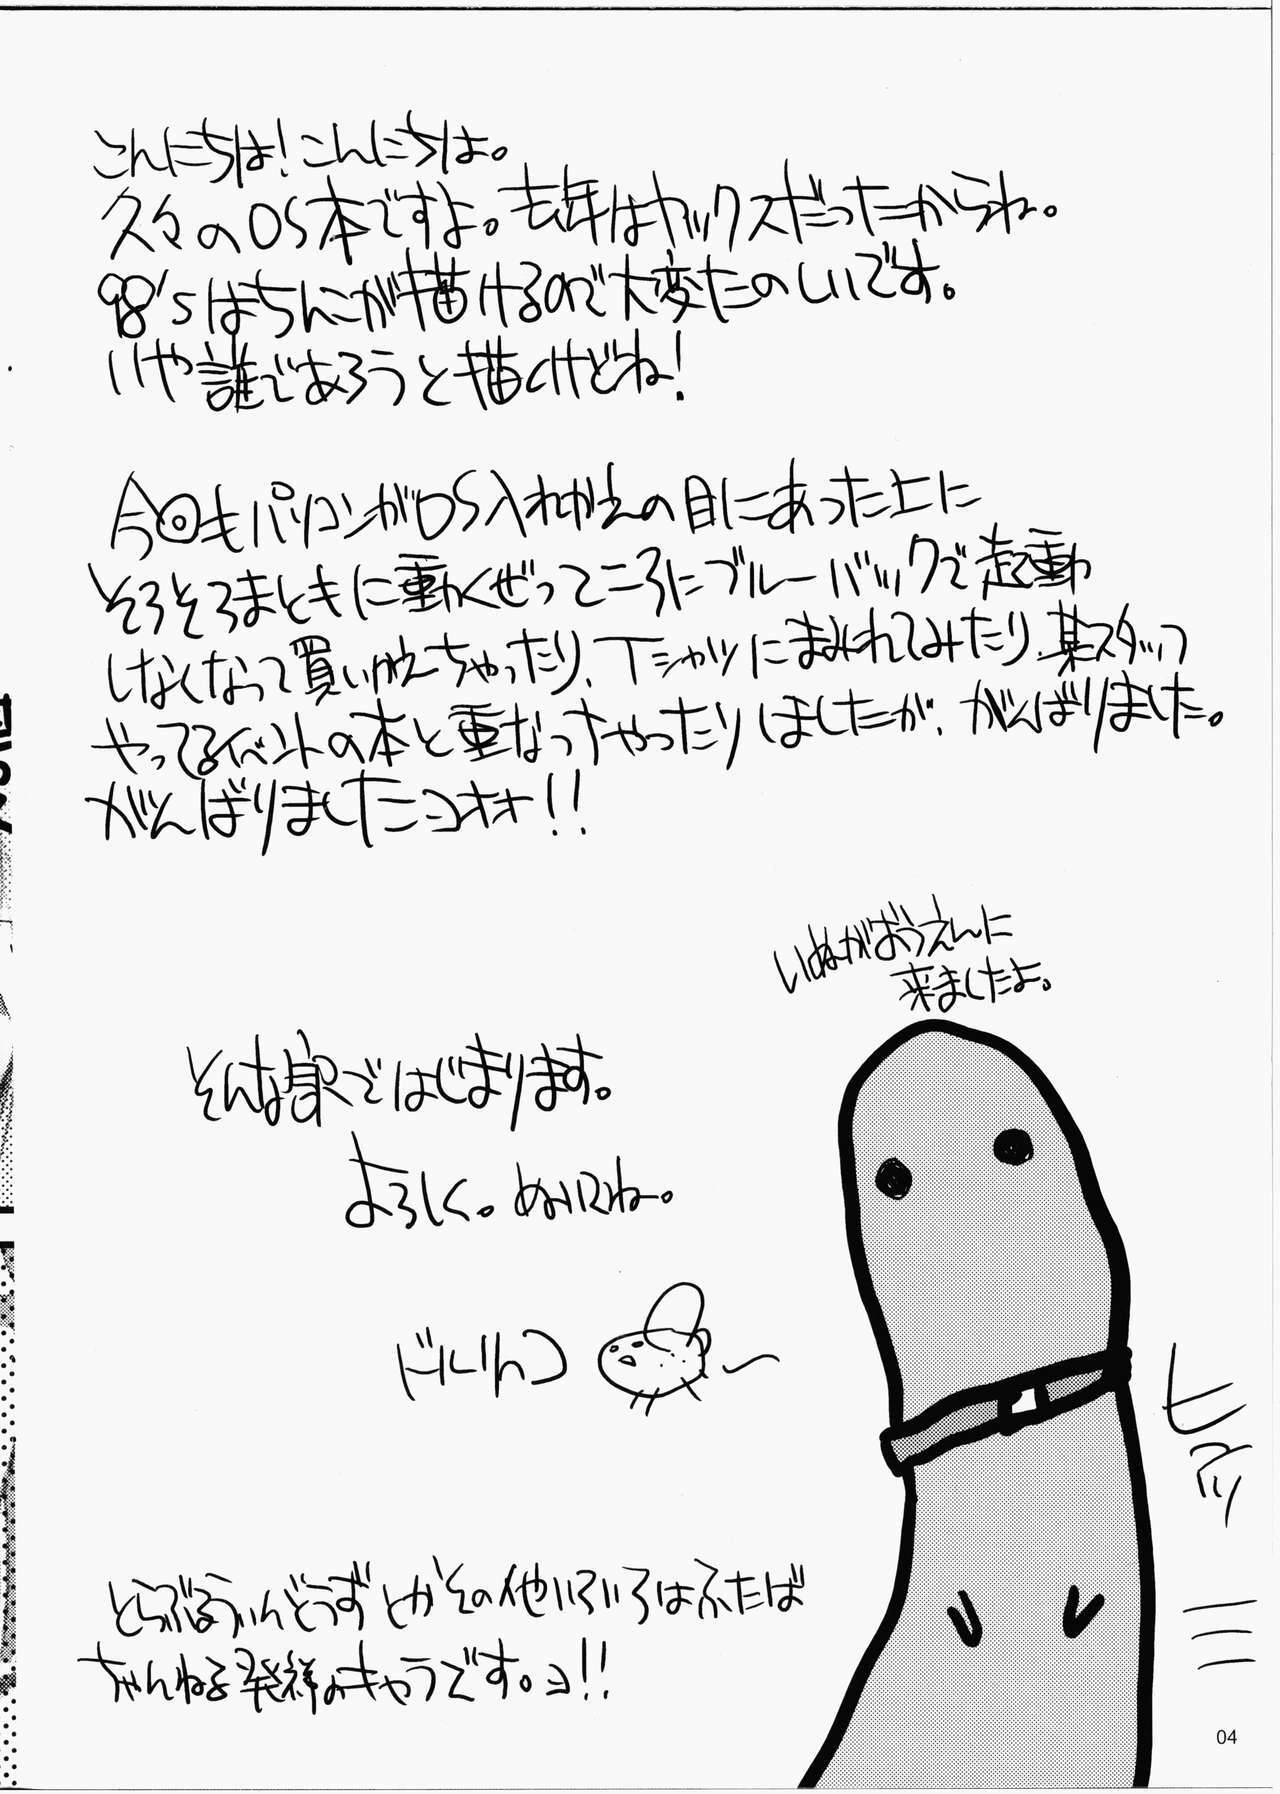 こんにちは!こんにちは。
久々のOS本ですよ。去年はヤックスだったからね。
98'sはちんこが描けるので大変たのしいです。
いや誰であろうと描くけどね!
今回もパソコンがOS入れかえの目にあった上に
そろそろまともに動くぜってころにブルーバックで起動
しなくなって買いかえちゃったり、Tシャツにまみれてみたり、某スタッフ
やってるイベントの本と重なっちゃったりしましたが、がんばりました。
がんばりましたニョホホ!!
いぬがおうえんに
来ましたよ。
そんな訳ではじまります。
よろしく。ぬいにね。
ドルリヘつ
ヒアッ
とらぶるういんどうずとかその他いろいろはふたば
ちゃんねる発祥のキャラです。ヨ!!
04